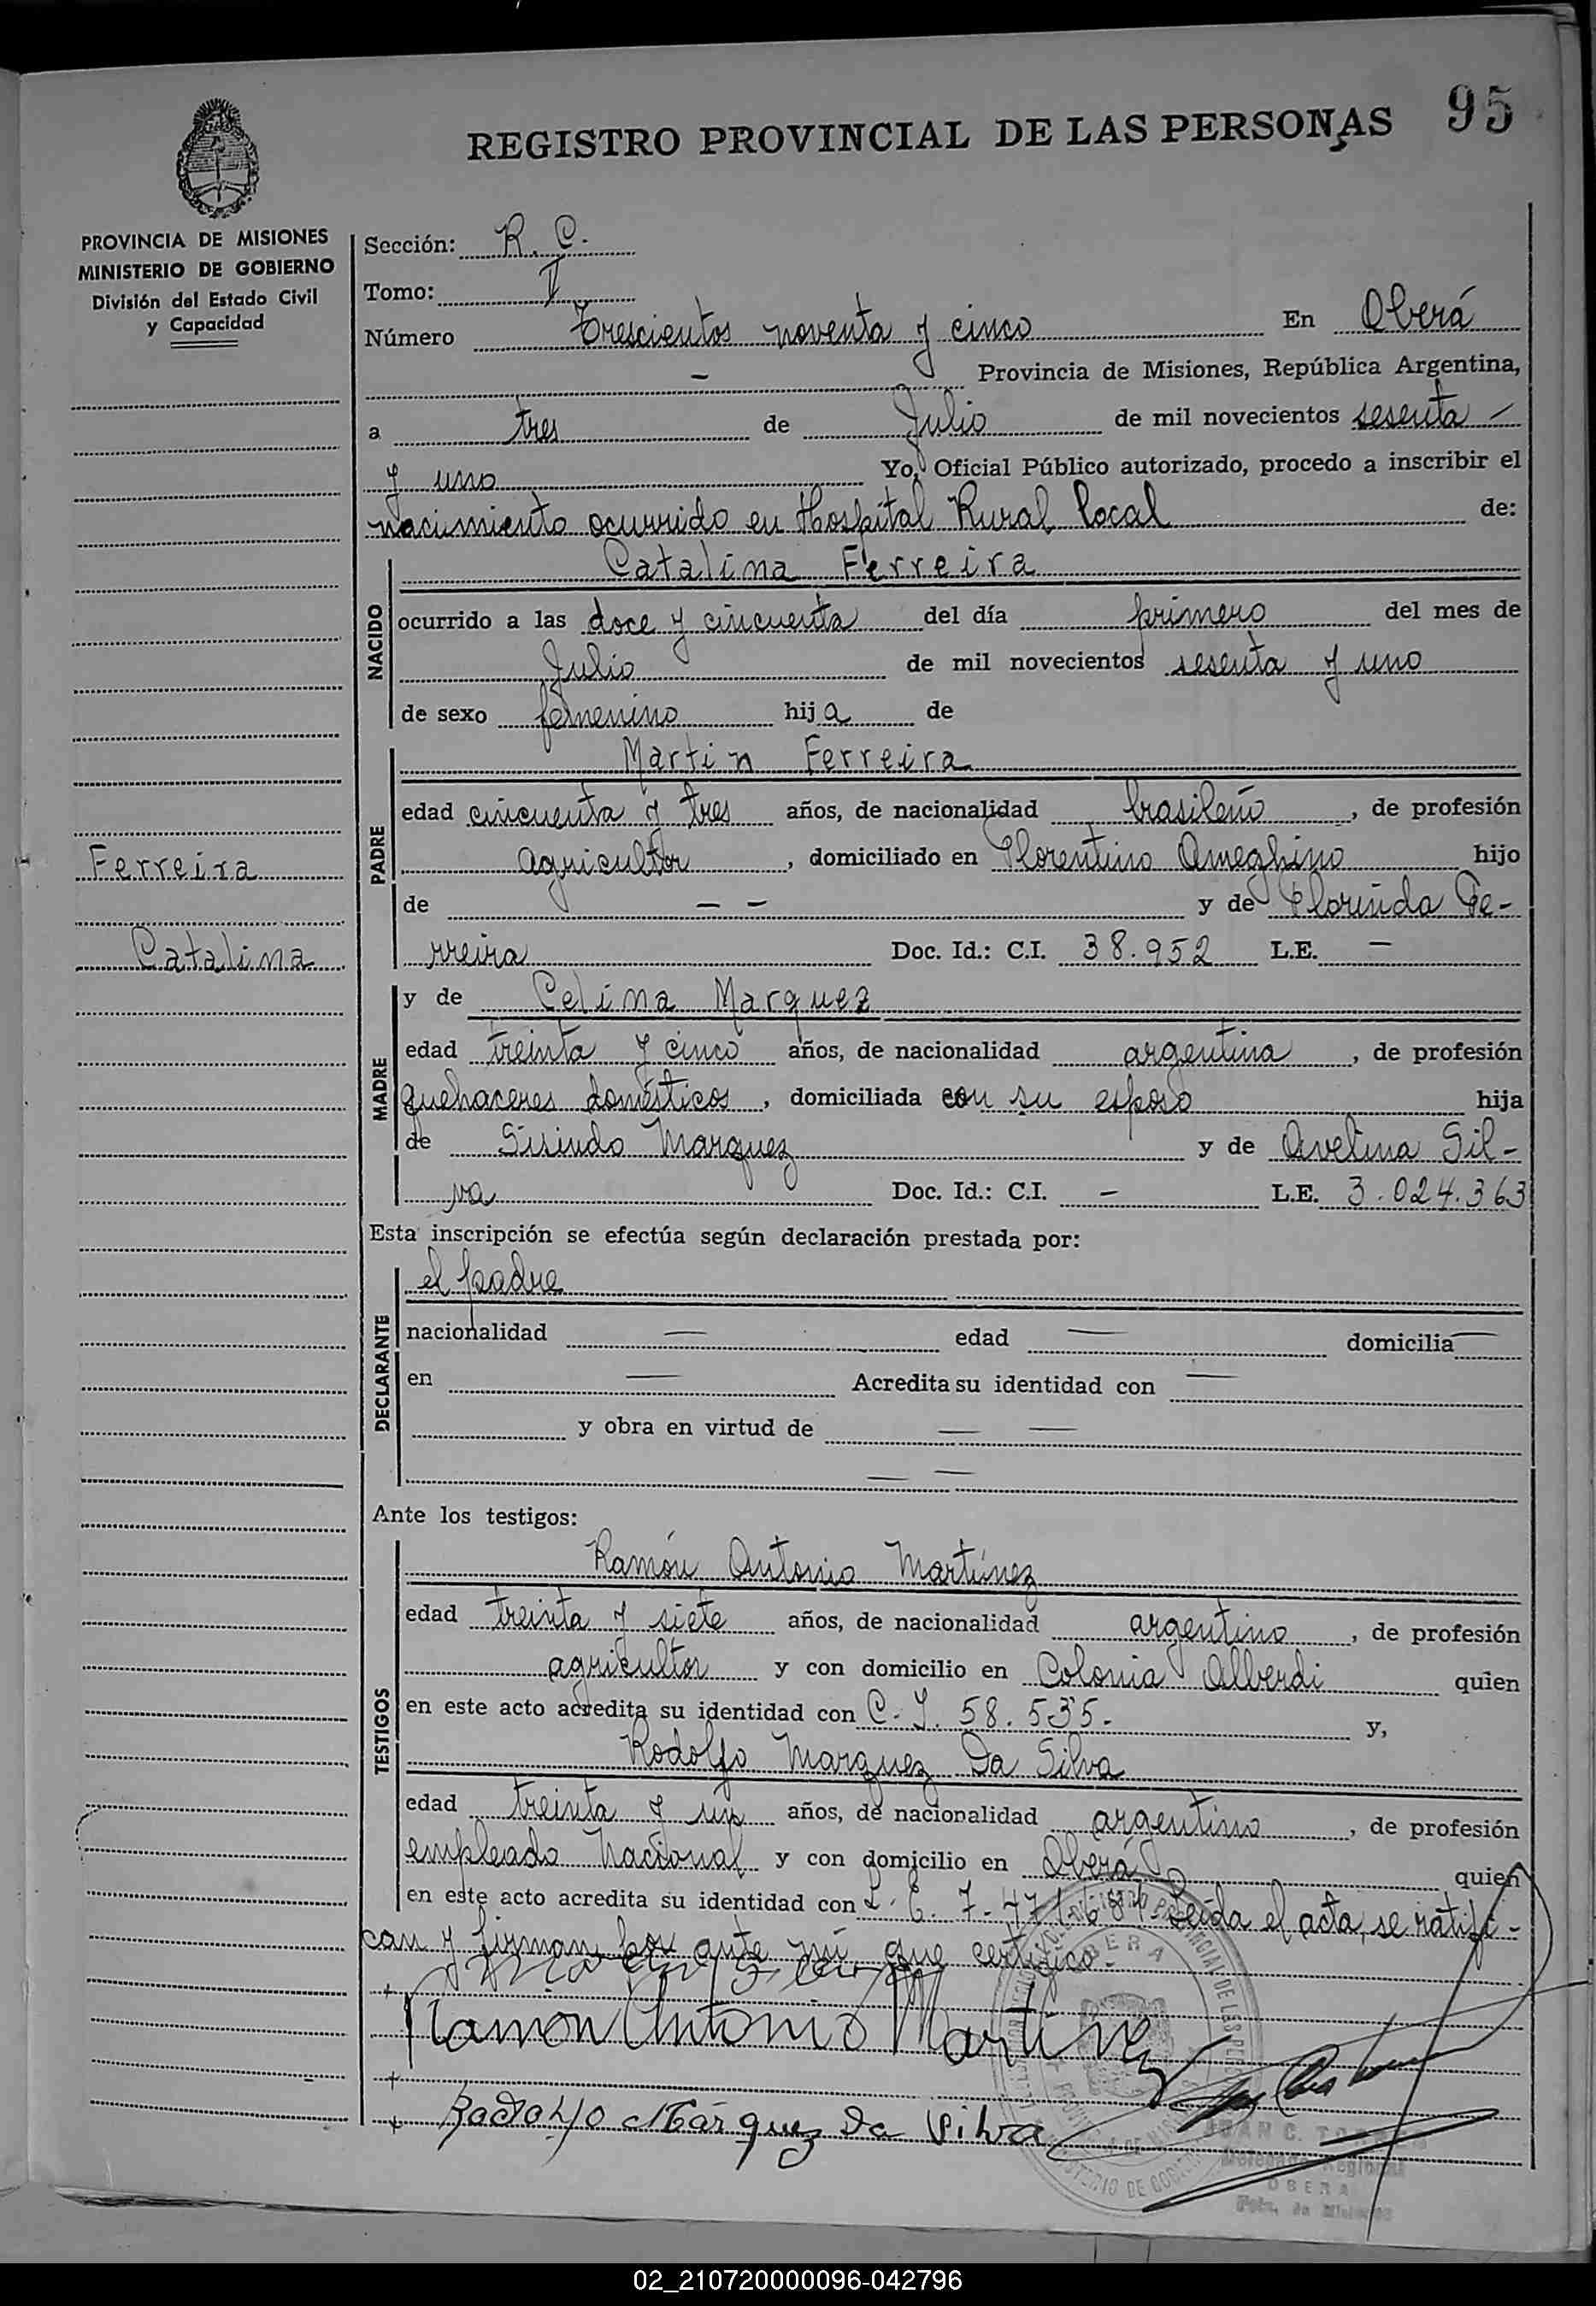 95
REGISTRO PROVINCIAL DE LAS PERSONAS
PROVINCIA DE MISIONES
MINISTERIO DE GOBIERNO
División del Estado Civil
y Capacidad
Sección: R. C.
Tomo: II
Número Trescientos noventa y cinco En Oberá
- Provincia de Misiones, República Argentina,
a tres de Julio de mil novecientos sesenta -
y uno Yo, Oficial Público autorizado, procedo a inscribir el
nacimiento ocurrido en Hospital Rural Local de:
NACIDO
Catalina Ferreira
ocurrido a las doce y cincuenta del día primero del mes de
Julio de mil novecientos sesenta y uno
de sexo femenino hija de
PADRE
Martin Ferreira
edad cincuenta y tres años, de nacionalidad brasileño, de profesión
agricultor, domiciliado en Florentino Ameghino hijo
de - - y de Florinda Fe-
rreira Doc. Id.: C.I. 38.952 L.E. -
Ferreira
Catalina
MADRE
y de Celina Marquez
edad treinta y cinco años, de nacionalidad argentina, de profesión
quehaceres domésticos, domiciliada con su esposo hija
de Sisindo Marquez y de Avelina Sil-
va Doc. Id.: C.I. - L.E. 3.024.363
Esta inscripción se efectúa según declaración prestada por:
DECLARANTE
el padre
nacionalidad — edad — domicilia —
en — Acredita su identidad con —
y obra en virtud de — —
— —
Ante los testigos:
TESTIGOS
Ramón Antonio Martínez
edad treinta y siete años, de nacionalidad argentino, de profesión
agricultor y con domicilio en Colonia Alberdi quien
en este acto acredita su identidad con C. I. 58.535.- y,
Rodolfo Marquez Da Silva
edad treinta y un años, de nacionalidad argentino, de profesión
empleado Nacional y con domicilio en Oberá quien
en este acto acredita su identidad con L. E. 7.471.681- Leída el acta, se ratifi-
can y firman por ante mí que certifico.-
Ramon Antonio Martinez
Rodolfo Márquez Da Silva
JUAN C. TORRES
Delegado Regional
OBERA
Pcia. de Misiones
02_210720000096-042796